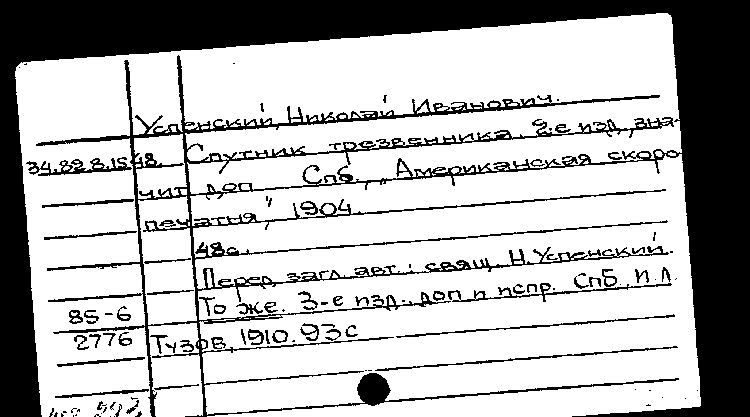 Успенский, Николай Иванович.
34.82.8.1548. Спутник трезвенника. 2-е изд., зна-
чит. доп. Спб., „Американская скоро-
печатня", 1904.
48с.
Перед загл. авт.: свящ. Н. Успенский.
85-6 То же. 3-е изд., доп и испр. Спб, И.Л.
2776 Тузов, 1910. 93с